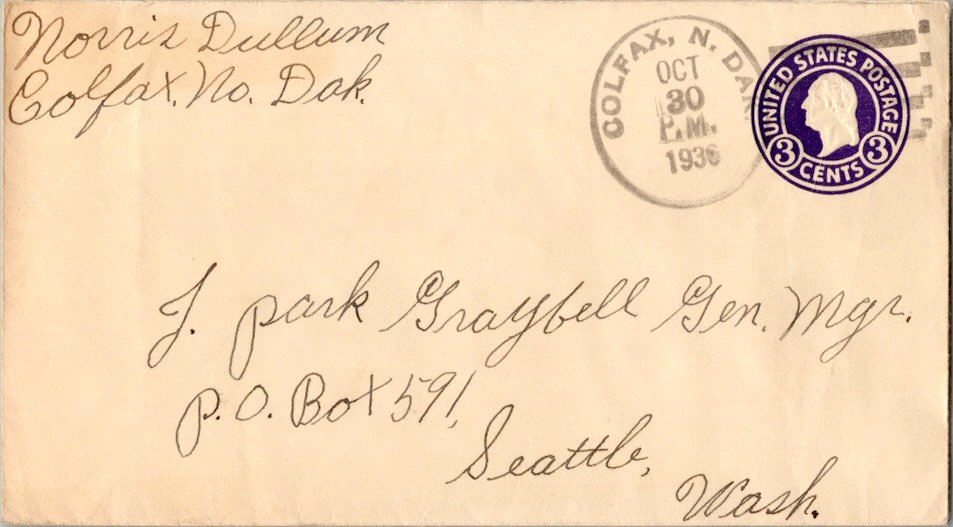 Norris Dullum
Colfax, No. Dak.
COLFAX, N. DAK.
OCT
30
P.M.
1936
UNITED STATES POSTAGE
3 CENTS 3
J. park Graybell Gen. Mgr.
P.O. Box 591,
Seattle,
Wash.